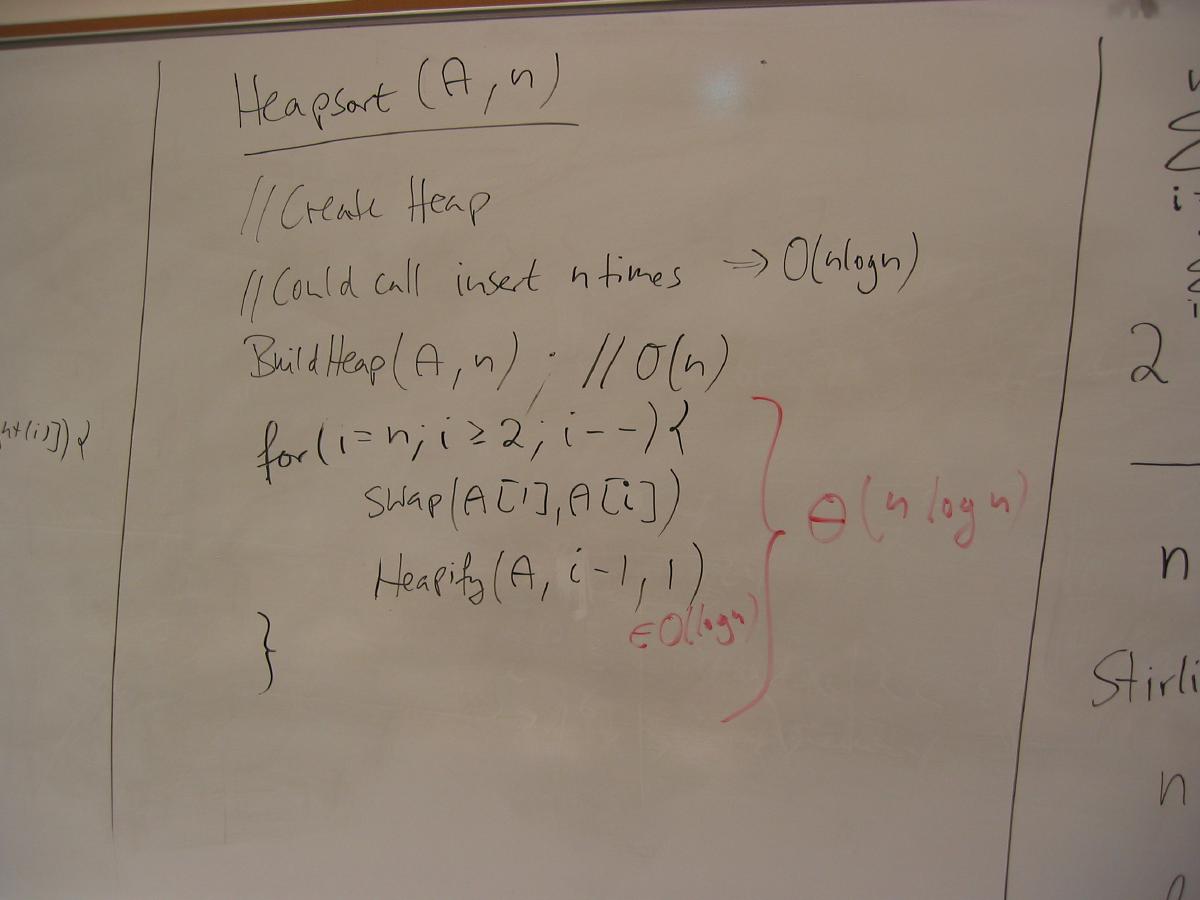 Heapsort (A, n)
//Create Heap
//Could call insert n times → O(nlogn)
BuildHeap(A, n) ; //O(n)
for(i=n; i≥2; i--){
swap(A[1], A[i])
Heapify(A, i-1, 1)
∈O(logn)
}
Θ(n log n)
2
n
n